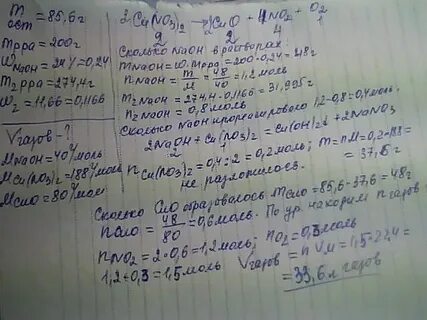 m ост = 85,6г
m рра = 200г
W NaOH = 24% = 0,24
m₂ рра = 274,4г
W₂ = 11,66 = 0,1166
V газов - ?
M NaOH = 40г/моль
M Cu(NO₃)₂ = 188г/моль
M CuO = 80г/моль
2Cu(NO₃)₂ → 2CuO + 4NO₂ + O₂
2 2 4 1
Сколько NaOH в растворах:
m NaOH = W·m рра = 200·0,24 = 48г
n NaOH = m/M = 48/40 = 1,2 моль
m₂ NaOH = 274,4·0,1166 = 31,995г
n₂ NaOH = 0,8 моль
Сколько NaOH прореагировало 1,2-0,8=0,4 моль.
2NaOH + Cu(NO₃)₂ = Cu(OH)₂↓ + 2NaNO₃
2 1
n Cu(NO₃)₂ = 0,4:2 = 0,2 моль; m = n·M = 0,2·188 =
не разложилось. = 37,6г
Сколько CuO образовалось m CuO = 85,6-37,6 = 48г
n CuO = 48/80 = 0,6 моль. По ур. находим n газов:
n NO₂ = 2·0,6 = 1,2 моль; n O₂ = 0,3 моль
1,2+0,3 = 1,5 моль V газов = n·Vм = 1,5·22,4 =
= 33,6 л газов